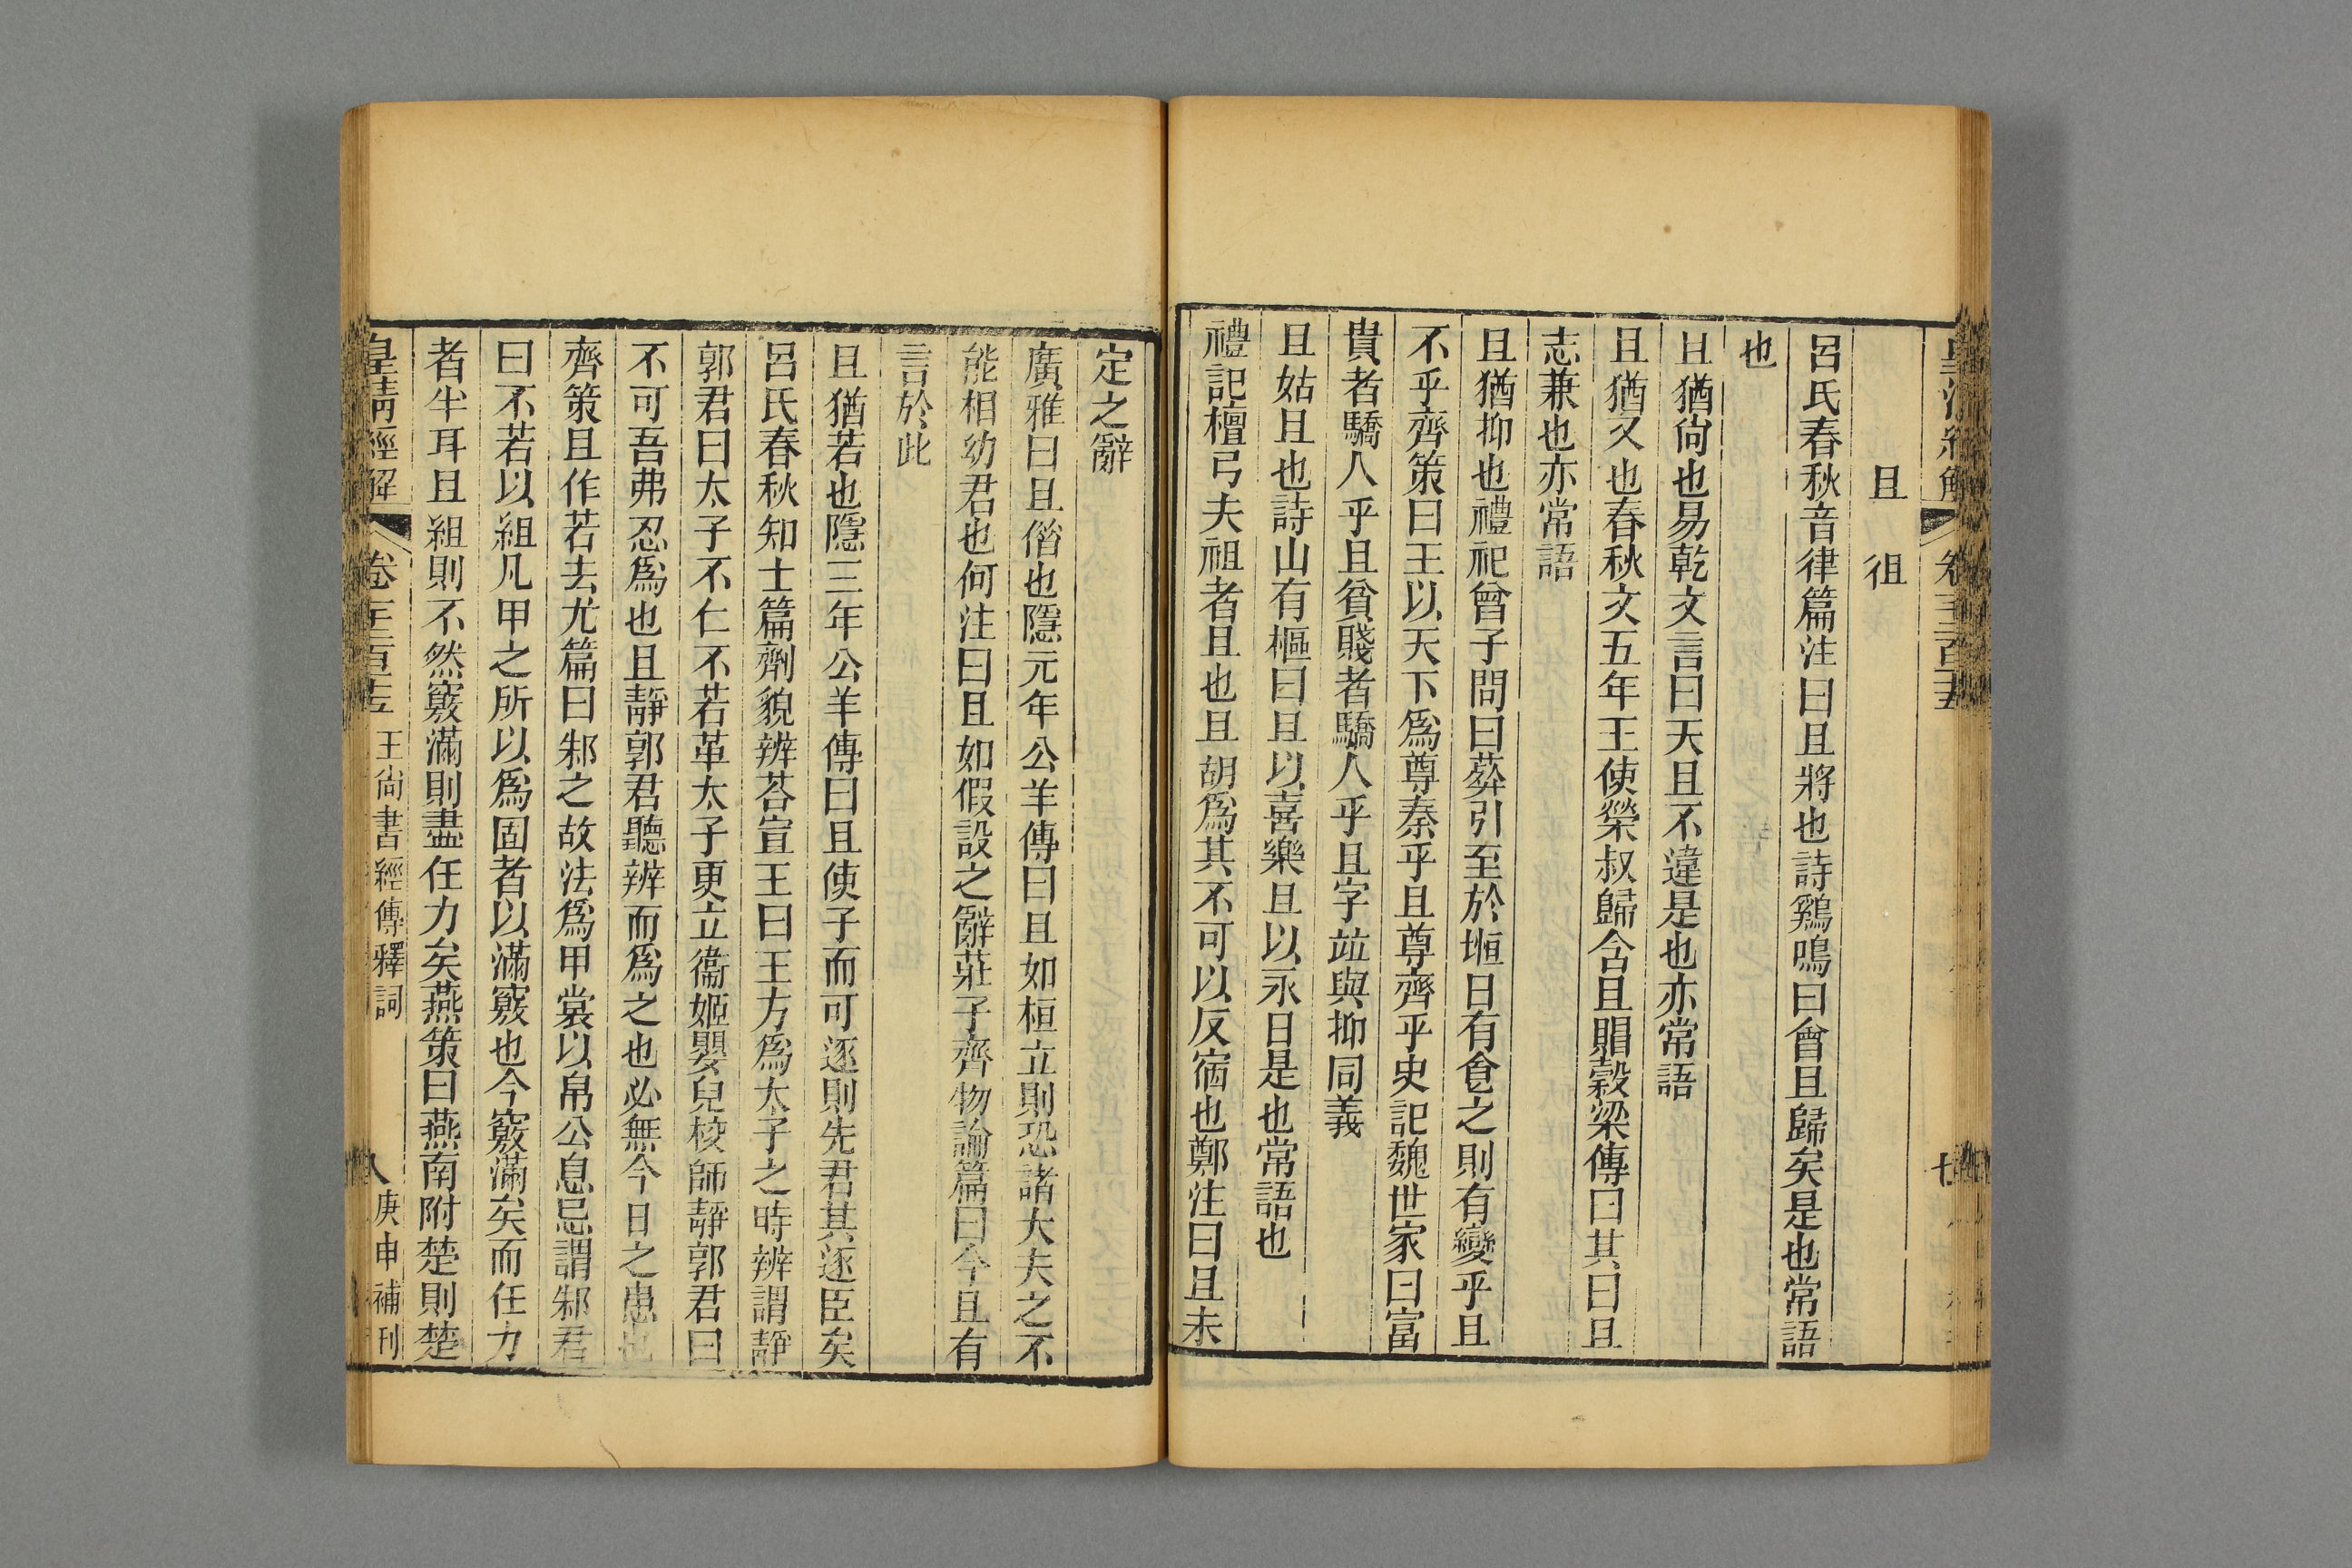 且 徂
呂氏春秋音律篇注曰且將也詩鷄鳴曰會且歸矣是也常語
也
且猶尙也易乾文言曰天且不違是也亦常語
且猶又也春秋文五年王使榮叔歸含且賵穀梁傳曰其曰且
志兼也亦常語
且猶抑也禮記曾子問曰葬引至於堩日有食之則有變乎且
不乎齊策曰王以天下爲尊秦乎且尊齊乎史記魏世家曰富
貴者驕人乎且貧賤者驕人乎且字竝與抑同義
且姑且也詩山有樞曰且以喜樂且以永日是也常語也
禮記檀弓夫祖者且也且胡爲其不可以反宿也鄭注曰且未
定之辭
廣雅曰且偺也隱元年公羊傳曰且如桓立則恐諸大夫之不
能相幼君也何注曰且如假設之辭莊子齊物論篇曰今且有
言於此
且猶若也隱三年公羊傳曰且使子而可逐則先君其逐臣矣
呂氏春秋知士篇劑貌辨荅宣王曰王方爲太子之時辨謂靜
郭君曰太子不仁不若革太子更立衞姬嬰兒校師靜郭君曰
不可吾弗忍爲也且靜郭君聽辨而爲之也必無今日之患也
齊策且作若去尤篇曰邾之故法爲甲裳以帛公息忌謂邾君
曰不若以組凡甲之所以爲固者以滿竅也今竅滿矣而任力
者半耳且組則不然竅滿則盡任力矣燕策曰燕南附楚則楚
皇清經解 卷 王尙書經傳釋詞 庚申補刊